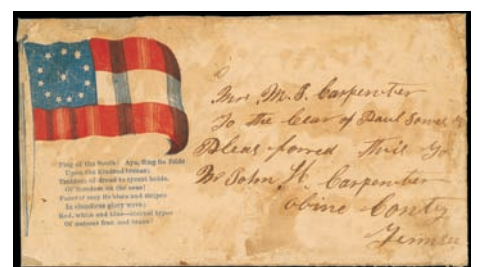 Flag of the South! Aye, fling its folds
Upon the kindred breeze;
Emblem of dread to tyrant holds,
Of freedom on the seas!
Forever may its stars and stripes
In cloudless glory wave;
Red, white and blue—eternal types
Of nations free and brave!
Mrs M. P. Carpentier
To the Cear of Paul
Pleas forred this to
Mr John H. Carpentier
obine Conty